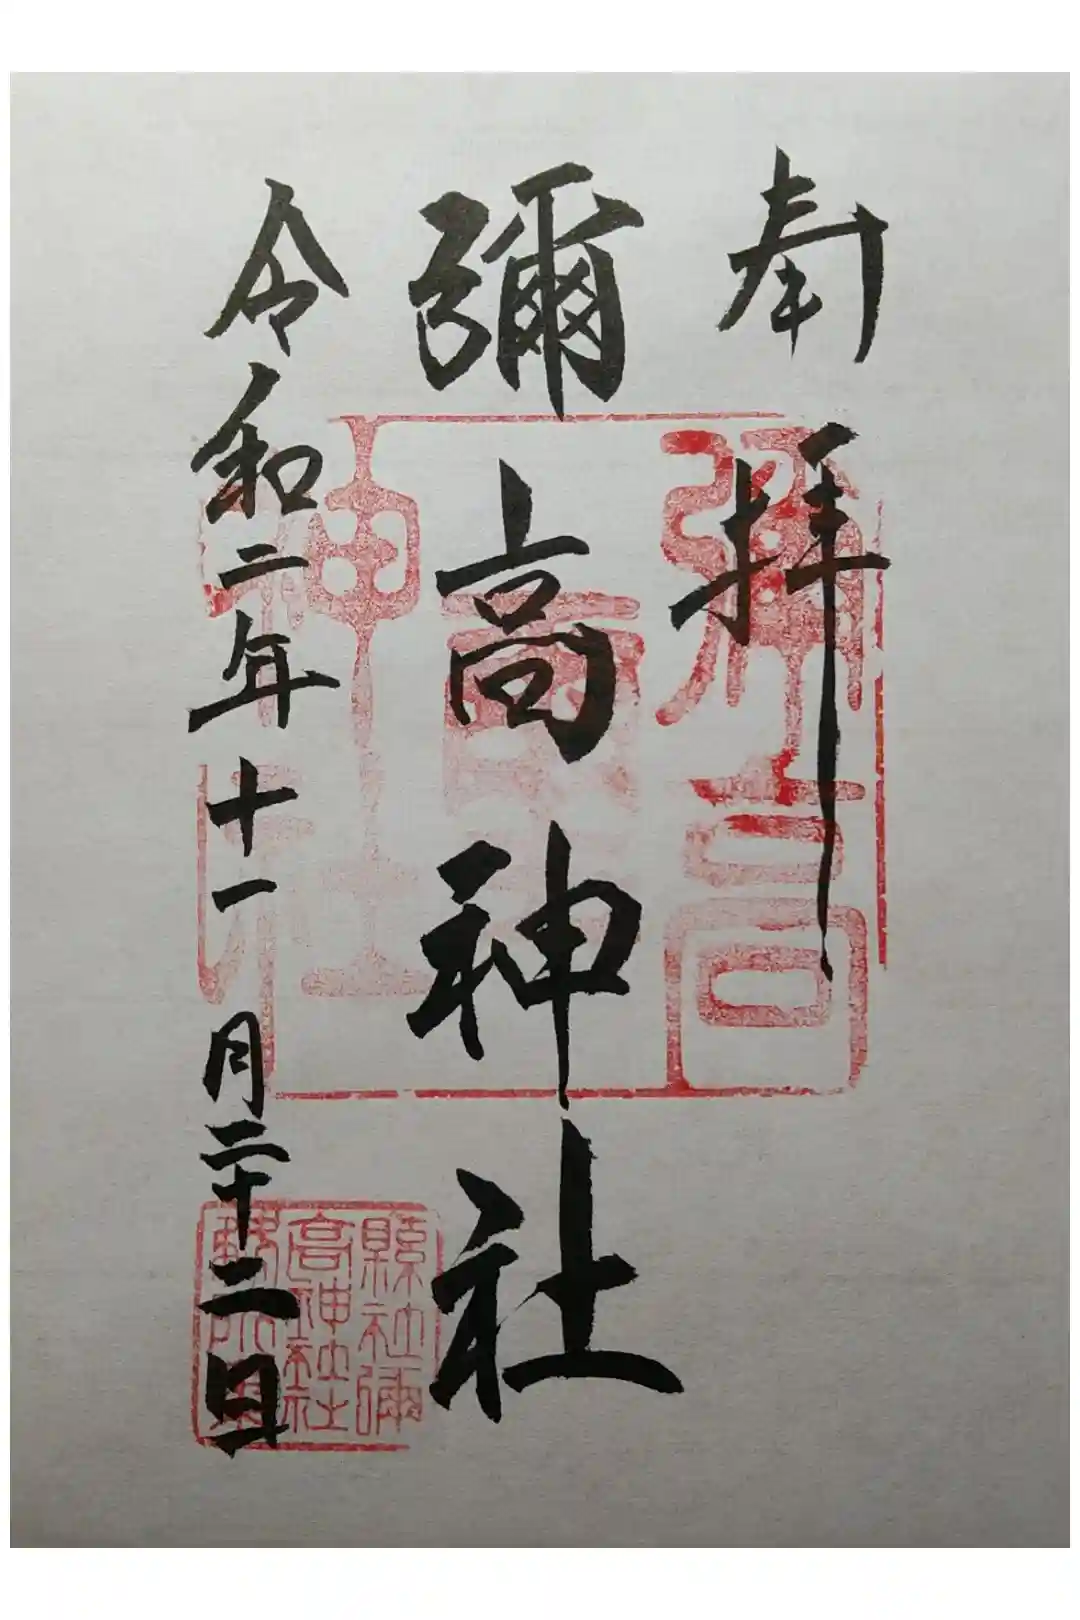 奉拝
彌高神社
令和二年十一月二十二日
彌高
神社
縣社彌
高神社